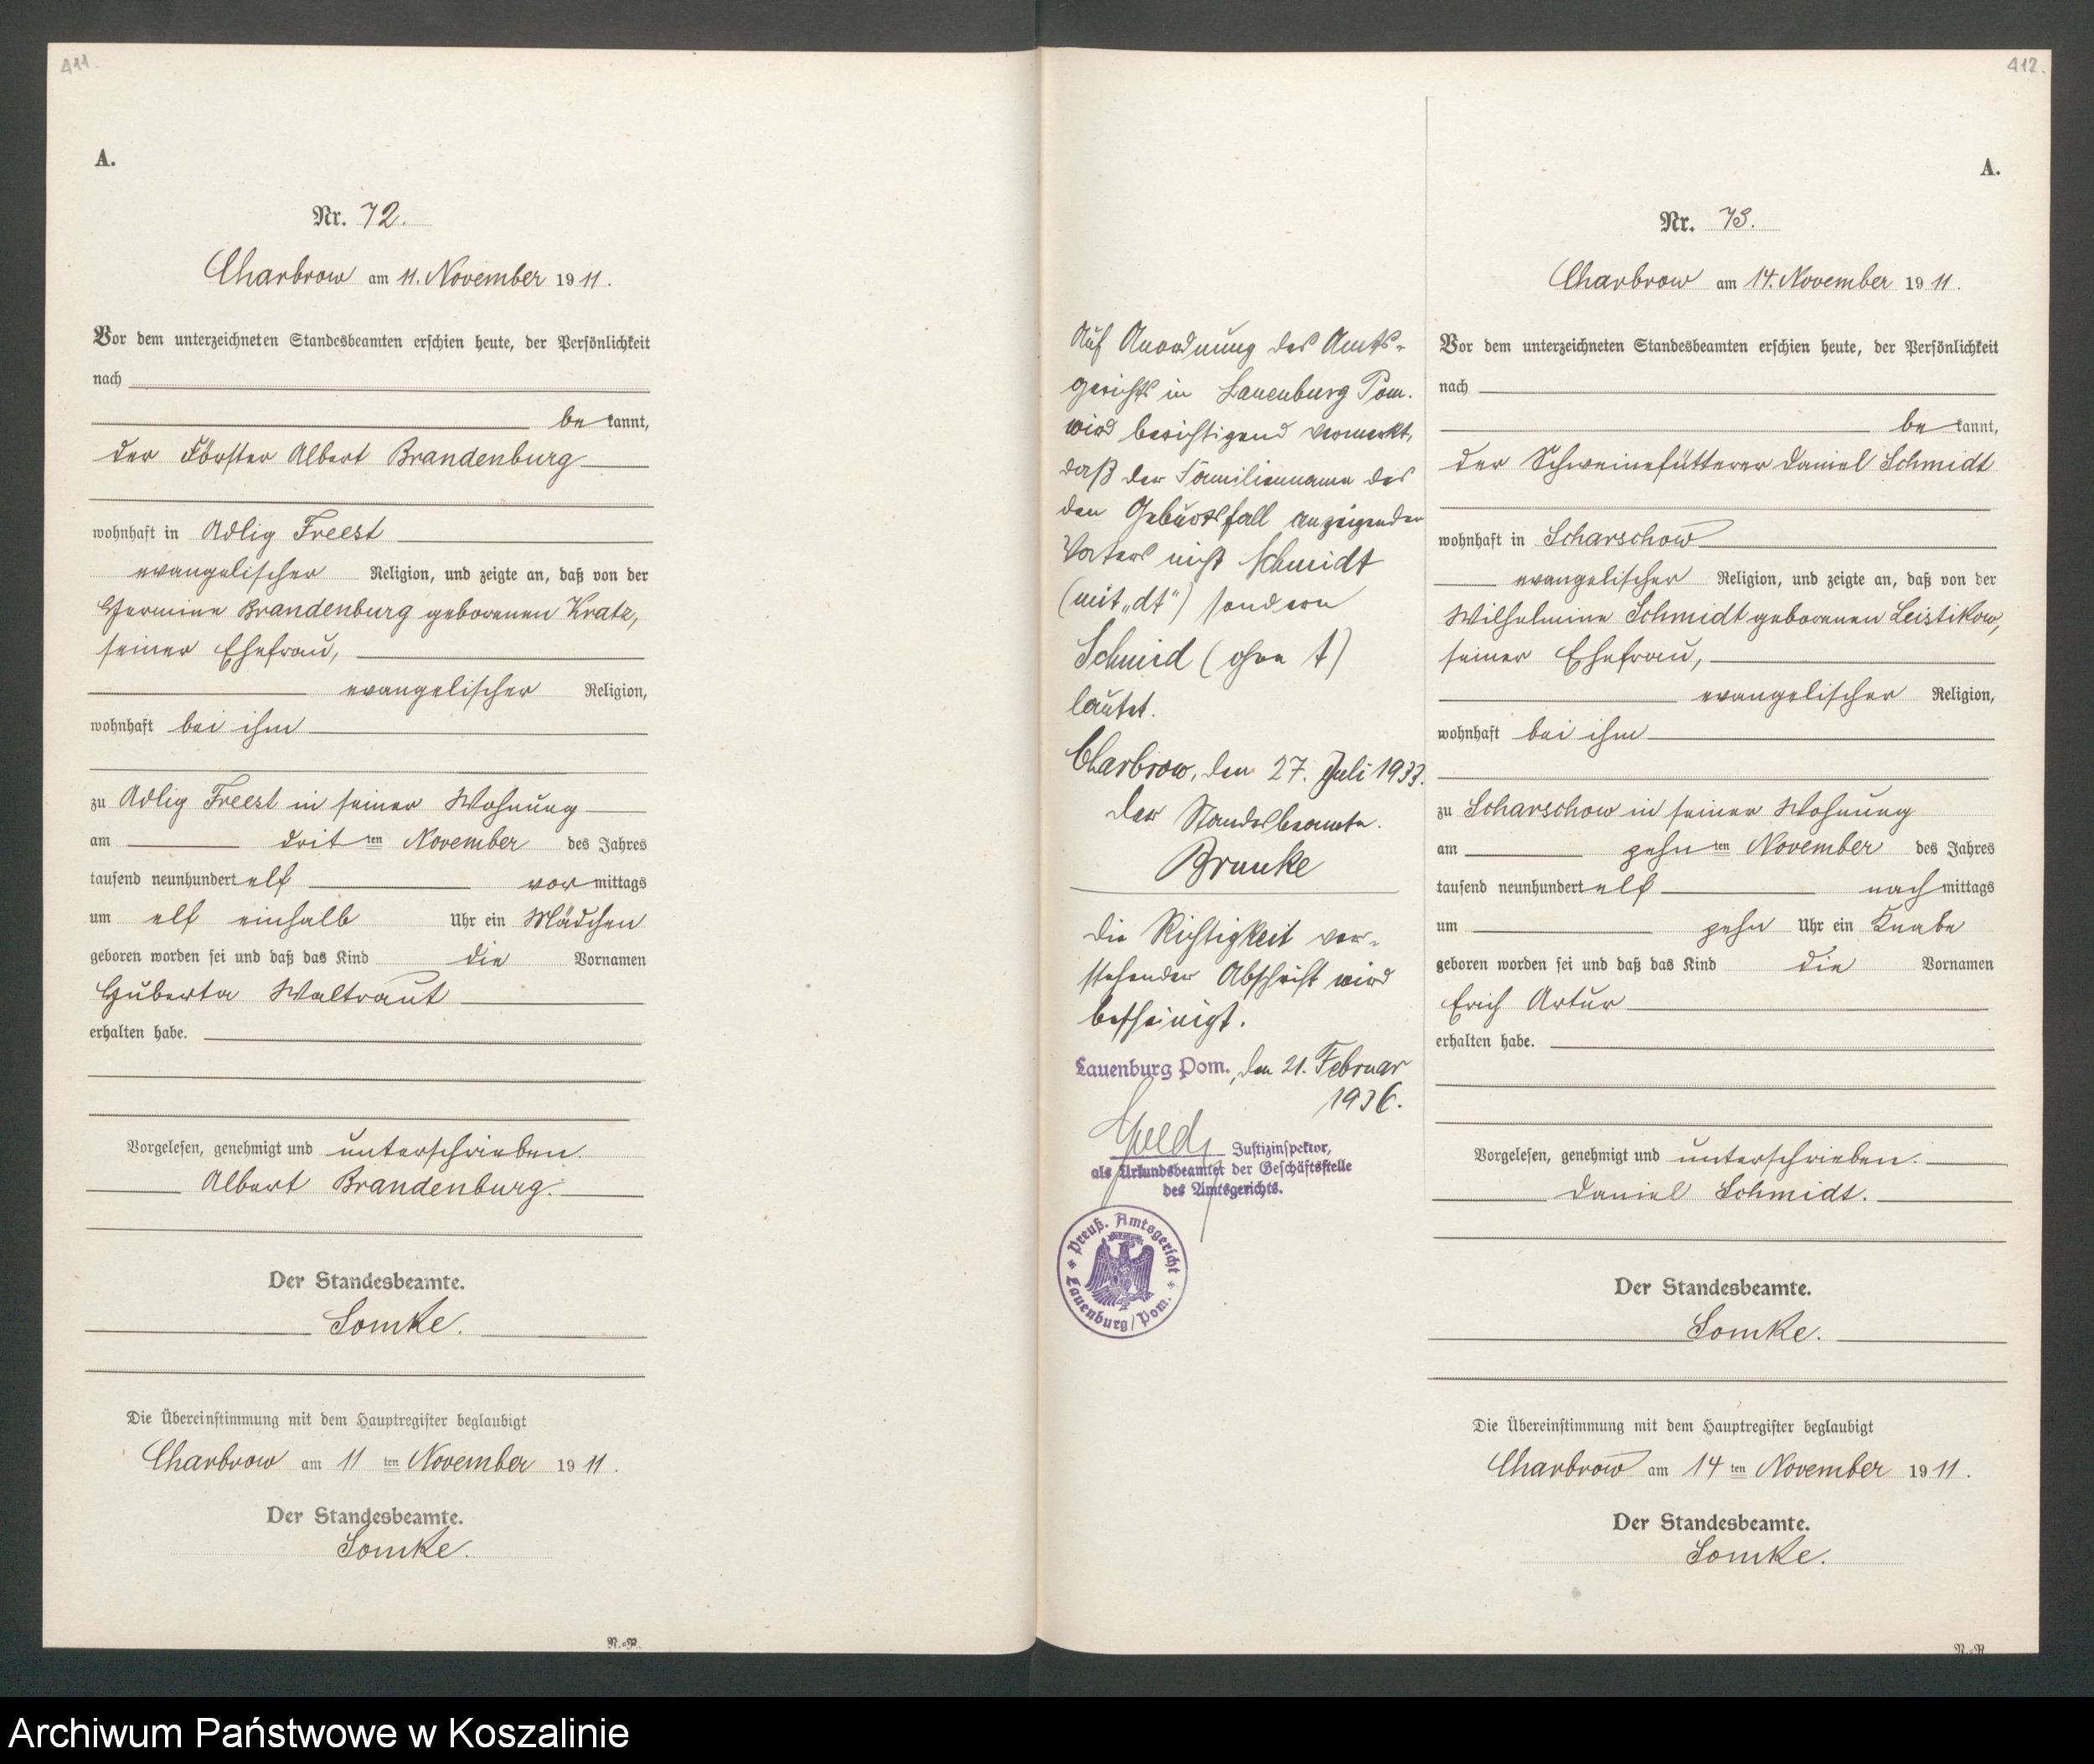 411.
A.
Nr. 72.
Charbrow am 11. November 1911.
Vor dem unterzeichneten Standesbeamten erschien heute, der Persönlichkeit
nach
bekannt,
der Förster Albert Brandenburg
wohnhaft in Adlig Freest
evangelischer Religion, und zeigte an, daß von der
Hermine Brandenburg geborenen Kratz,
seiner Ehefrau,
evangelischer Religion,
wohnhaft bei ihm
zu Adlig Freest in seiner Wohnung
am dritten November des Jahres
tausend neunhundert elf vormittags
um elf einhalb Uhr ein Mädchen
geboren worden sei und daß das Kind die Vornamen
Huberta Waltraut
erhalten habe.
Vorgelesen, genehmigt und unterschrieben.
Albert Brandenburg.
Der Standesbeamte.
Somke.
Die Übereinstimmung mit dem Hauptregister beglaubigt
Charbrow am 11ten November 1911.
Der Standesbeamte.
Somke.
N.=R.
Auf Anordnung des Amts-
gerichts in Lauenburg Pom.
wird berichtigend vermerkt,
daß der Familienname des
den Geburtsfall anzeigenden
Vaters nicht Schmidt
(mit „dt“) sondern
Schmid (ohne t)
lautet.
Charbrow, den 27. Juli 1933.
Der Standesbeamte.
Brunke
Die Richtigkeit vor-
stehender Abschrift wird
bescheinigt.
Lauenburg Pom., den 21. Februar
1936.
Justizinspektor,
als Urkundsbeamter der Geschäftsstelle
des Amtsgerichts.
Preuß. Amtsgericht
Lauenburg/Pom.
412.
A.
Nr. 73.
Charbrow am 14. November 1911.
Vor dem unterzeichneten Standesbeamten erschien heute, der Persönlichkeit
nach
bekannt,
der Schweinefütterer Daniel Schmidt
wohnhaft in Scharschow
evangelischer Religion, und zeigte an, daß von der
Wilhelmine Schmidt geborenen Leistikow,
seiner Ehefrau,
evangelischer Religion,
wohnhaft bei ihm
zu Scharschow in seiner Wohnung
am zehnten November des Jahres
tausend neunhundert elf nachmittags
um zehn Uhr ein Knabe
geboren worden sei und daß das Kind die Vornamen
Erich Artur
erhalten habe.
Vorgelesen, genehmigt und unterschrieben.
Daniel Schmidt.
Der Standesbeamte.
Somke.
Die Übereinstimmung mit dem Hauptregister beglaubigt
Charbrow am 14ten November 1911.
Der Standesbeamte.
Somke.
N.=R.
Archiwum Państwowe w Koszalinie